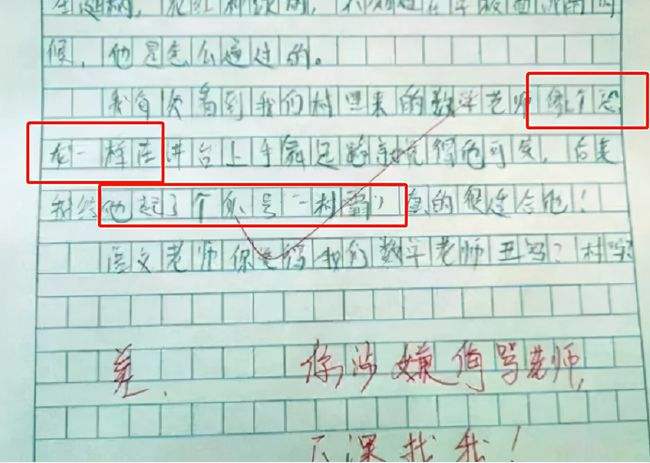 候，他是怎么通过的。
我有次看到我们村里来的数学老师像个恐
龙一样在讲台上手舞足蹈就觉得他可笑，后来
我给他起了个外号"村霸"真的很适合他！
语文老师你觉得我们数学老师丑吗？村吗？
差.
你涉嫌侮骂老师,
下课找我！